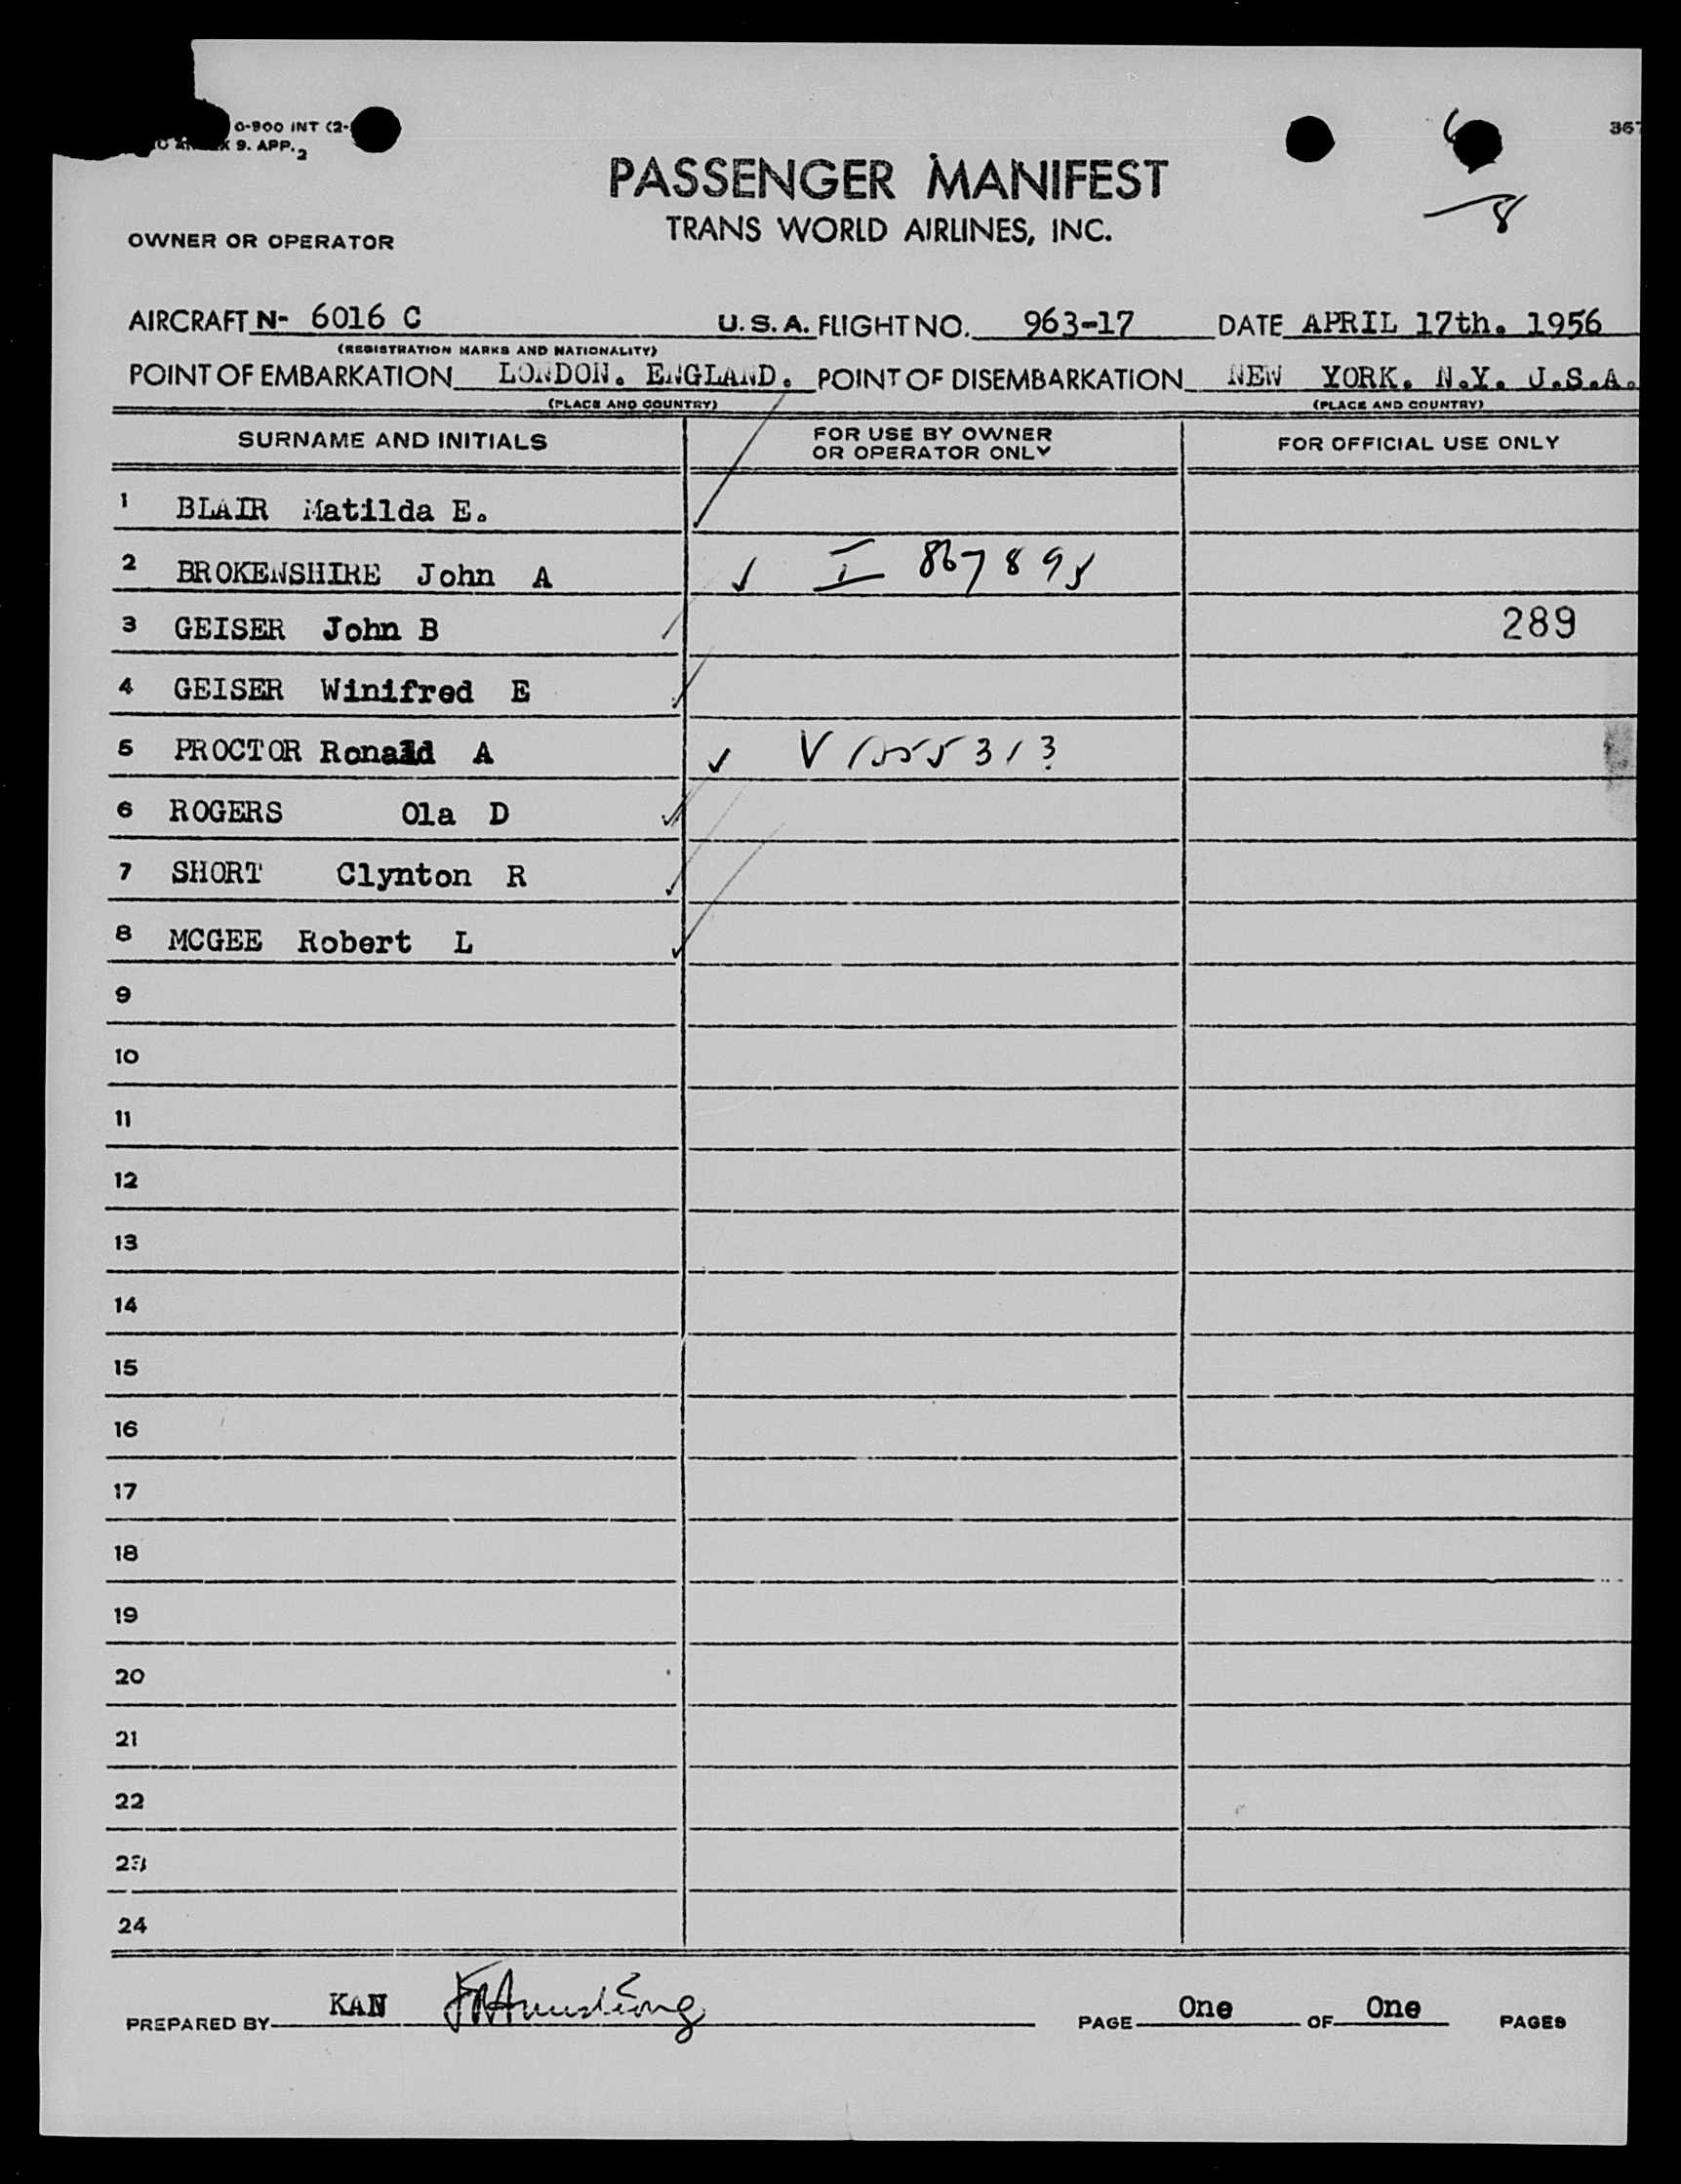 0-900 INT (2-
X 9. APP. 2
367
PASSENGER MANIFEST
8
TRANS WORLD AIRLINES, INC.
OWNER OR OPERATOR
AIRCRAFT N- 6016 C U. S. A. FLIGHT NO. 963-17 DATE APRIL 17th. 1956
(REGISTRATION MARKS AND NATIONALITY)
POINT OF EMBARKATION LONDON. ENGLAND. POINT OF DISEMBARKATION NEW YORK. N.Y. U.S.A.
(PLACE AND COUNTRY) (PLACE AND COUNTRY)
SURNAME AND INITIALS FOR USE BY OWNER OR OPERATOR ONLY FOR OFFICIAL USE ONLY
1 BLAIR Matilda E.
2 BROKENSHIRE John A ✓ I 867895
3 GEISER John B 289
4 GEISER Winifred E
5 PROCTOR Ronald A ✓ V 1555313
6 ROGERS Ola D
7 SHORT Clynton R
8 MCGEE Robert L
9
10
11
12
13
14
15
16
17
18
19
20
21
22
23
24
PREPARED BY KAN Armstrong PAGE One OF One PAGES